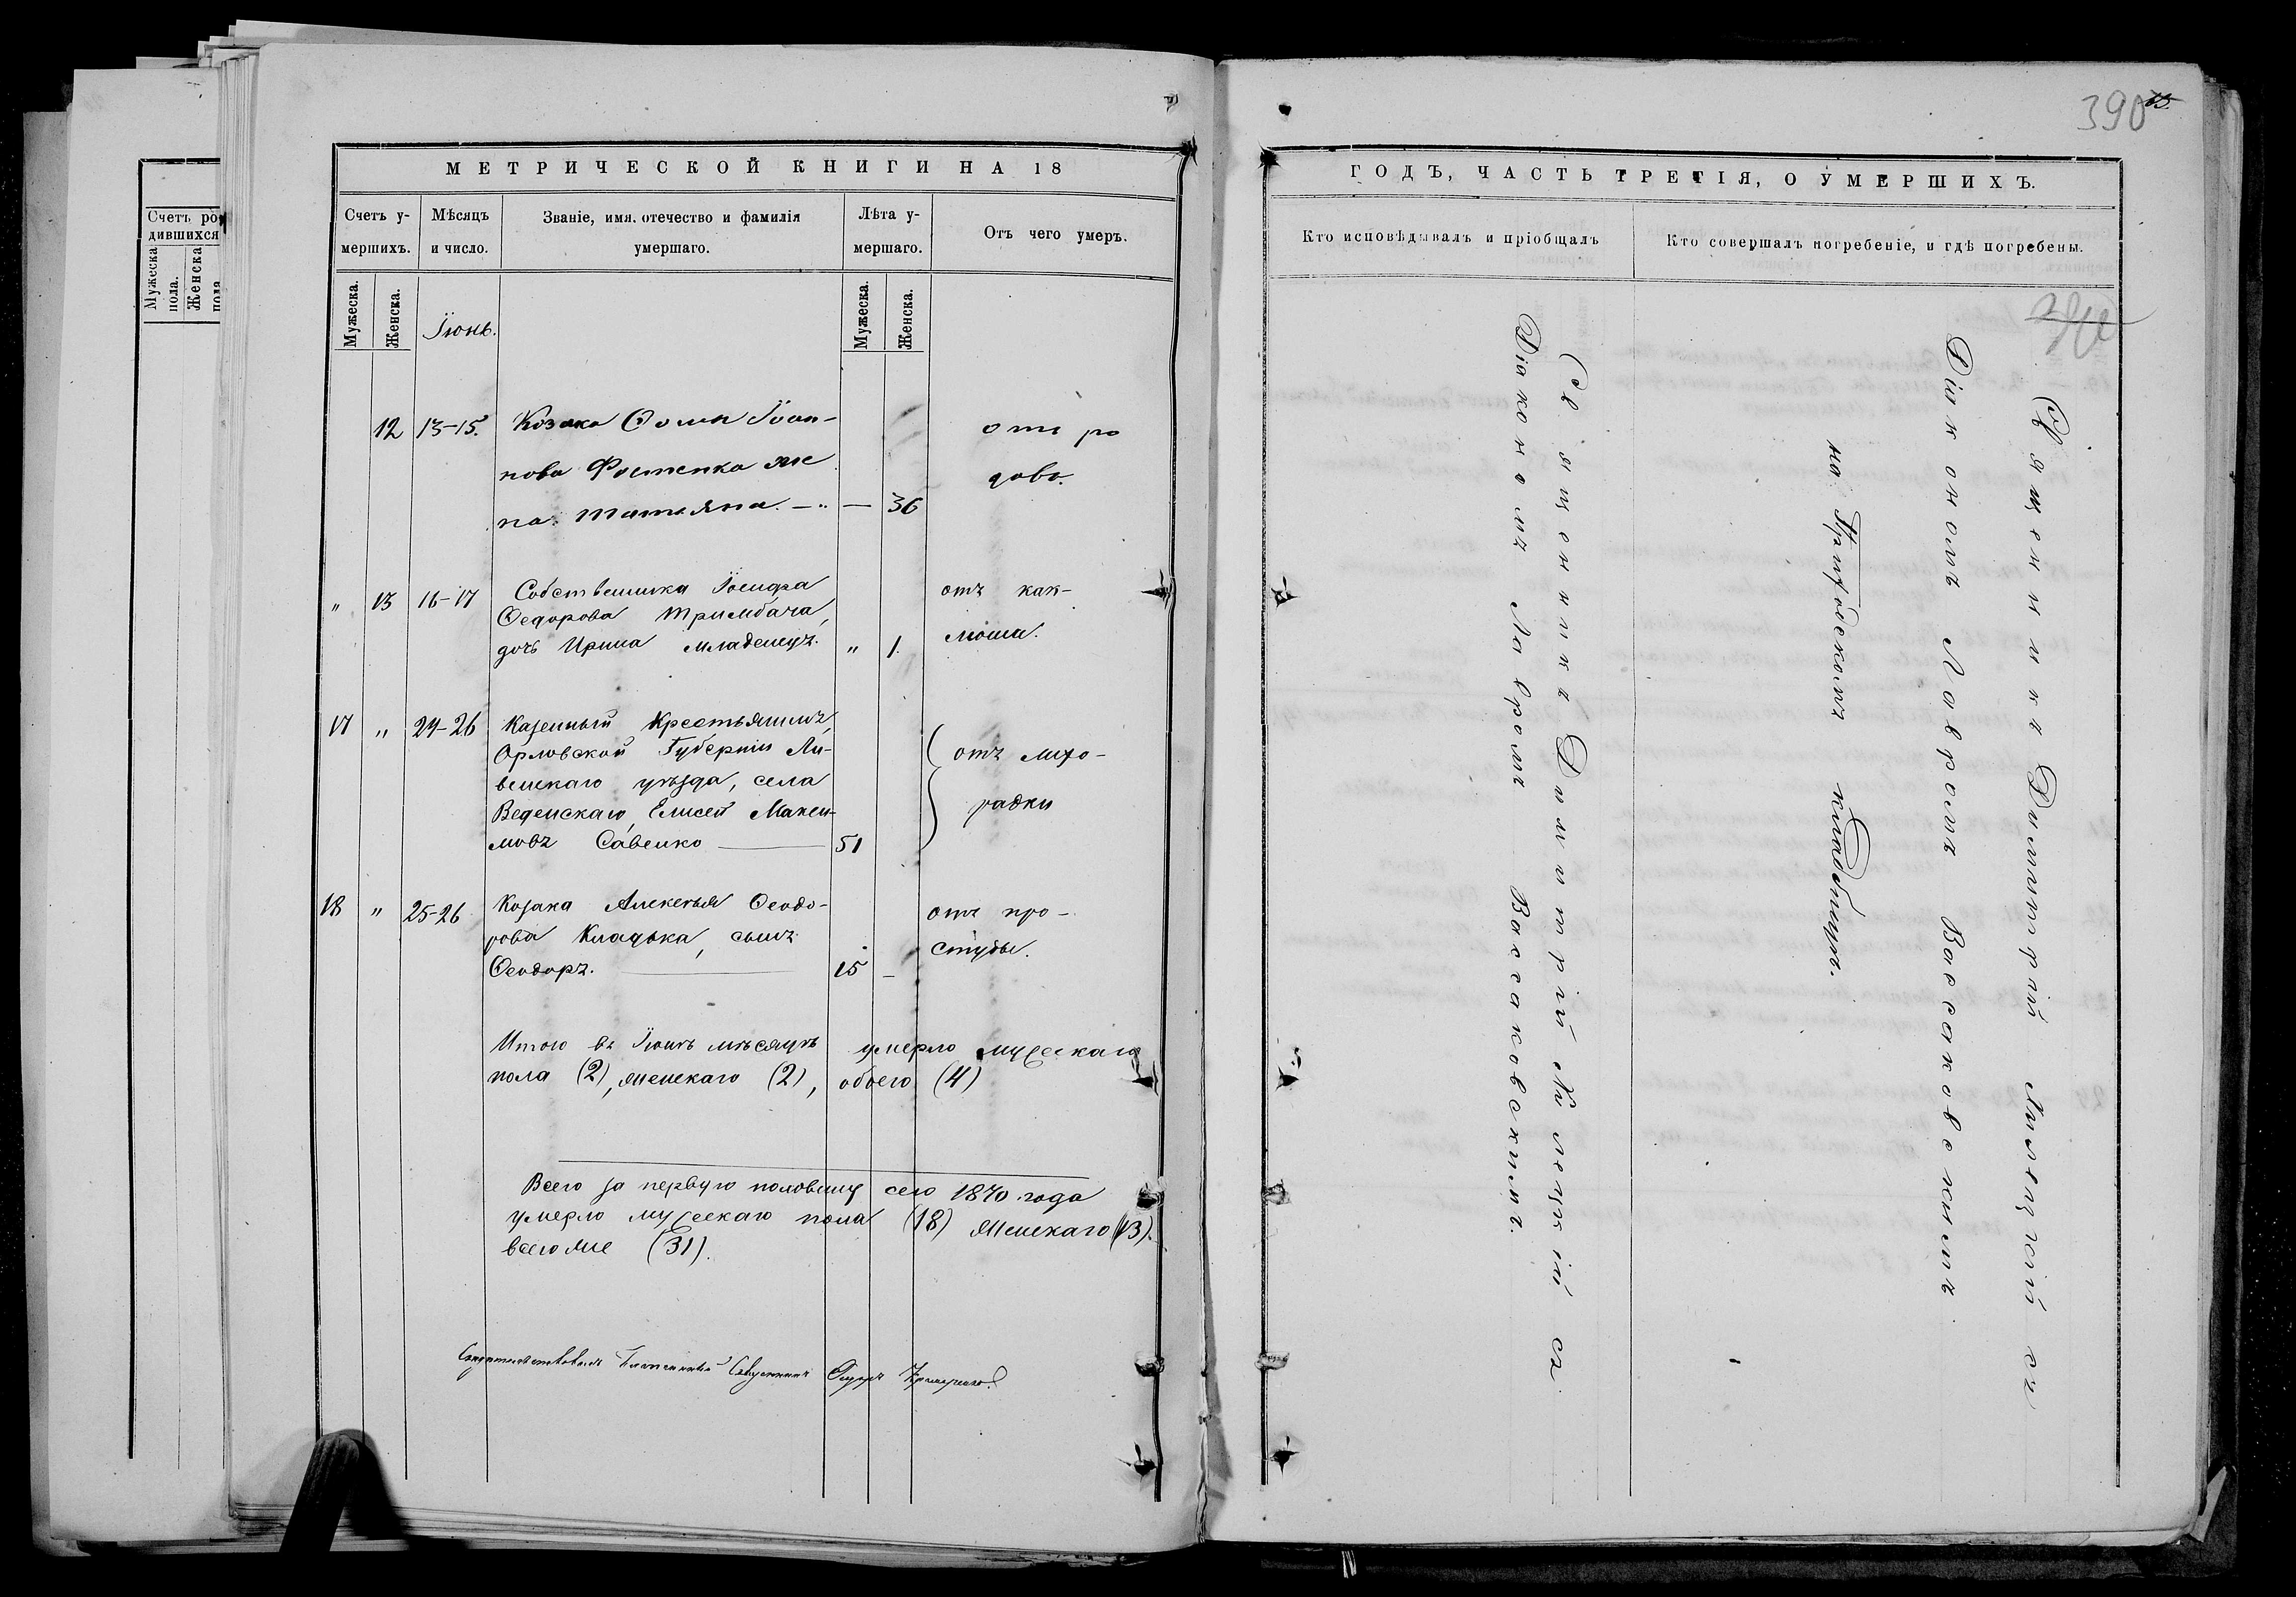 Счетъ ро-
дившихся
Мужеска
пола.
Женска
пола
МЕТРИЧЕСКОЙ КНИГИ НА 18
Счетъ у-
мершихъ.
Мѣсяцъ
и число.
Званіе, имя, отечество и фамилія
умершаго.
Лѣта у-
мершаго.
Отъ чего умеръ.
Мужеска.
Женска.
Іюнь.
Мужеска.
Женска.
12 13-15. Козака Ѳомы Іоан-
нова Фостенка же
на Татьяна. — 36
отъ ро
довъ.
" 13 16-17 Собственника Іосифа
Ѳедорова Тримбача,
дочь Ирина младенецъ. " 1.
отъ каш-
люша.
17 " 24-26 Казенный Крестьянинъ
Орловской Губерніи Ли-
венскаго уѣзда, села
Веденскаго, Елисей Макси-
мовъ Савенко — 51
отъ лихо-
радки
18 " 25-26 Козака Алексѣя Ѳеодо-
рова Кладька, сынъ
Ѳеодоръ. — 15 —
отъ про-
студы.
Итого въ Іюнѣ мѣсяцѣ умерло мужескаго
пола (2), женскаго (2), обоего (4)
Всего за первую половину сего 1870 года
умерло мужескаго пола (18) женскаго (13).
всего же (31).
390
ГОДЪ, ЧАСТЬ ТРЕТІЯ, О УМЕРШИХЪ.
Кто исповѣдывалъ и пріобщалъ
Кто совершалъ погребеніе, и гдѣ погребены.
Священникъ Димитрій съ
Діакономъ Лавромъ Вассаковскимъ.
Священникъ Димитрій съ
Діакономъ Лавромъ Вассаковскимъ
на кладбищѣ.